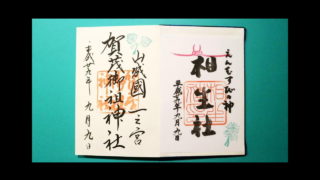 えんむすびの神
相生社
平成廿九年九月九日
山城國一之宮
賀茂御祖神社
平成廿九年 九月九日